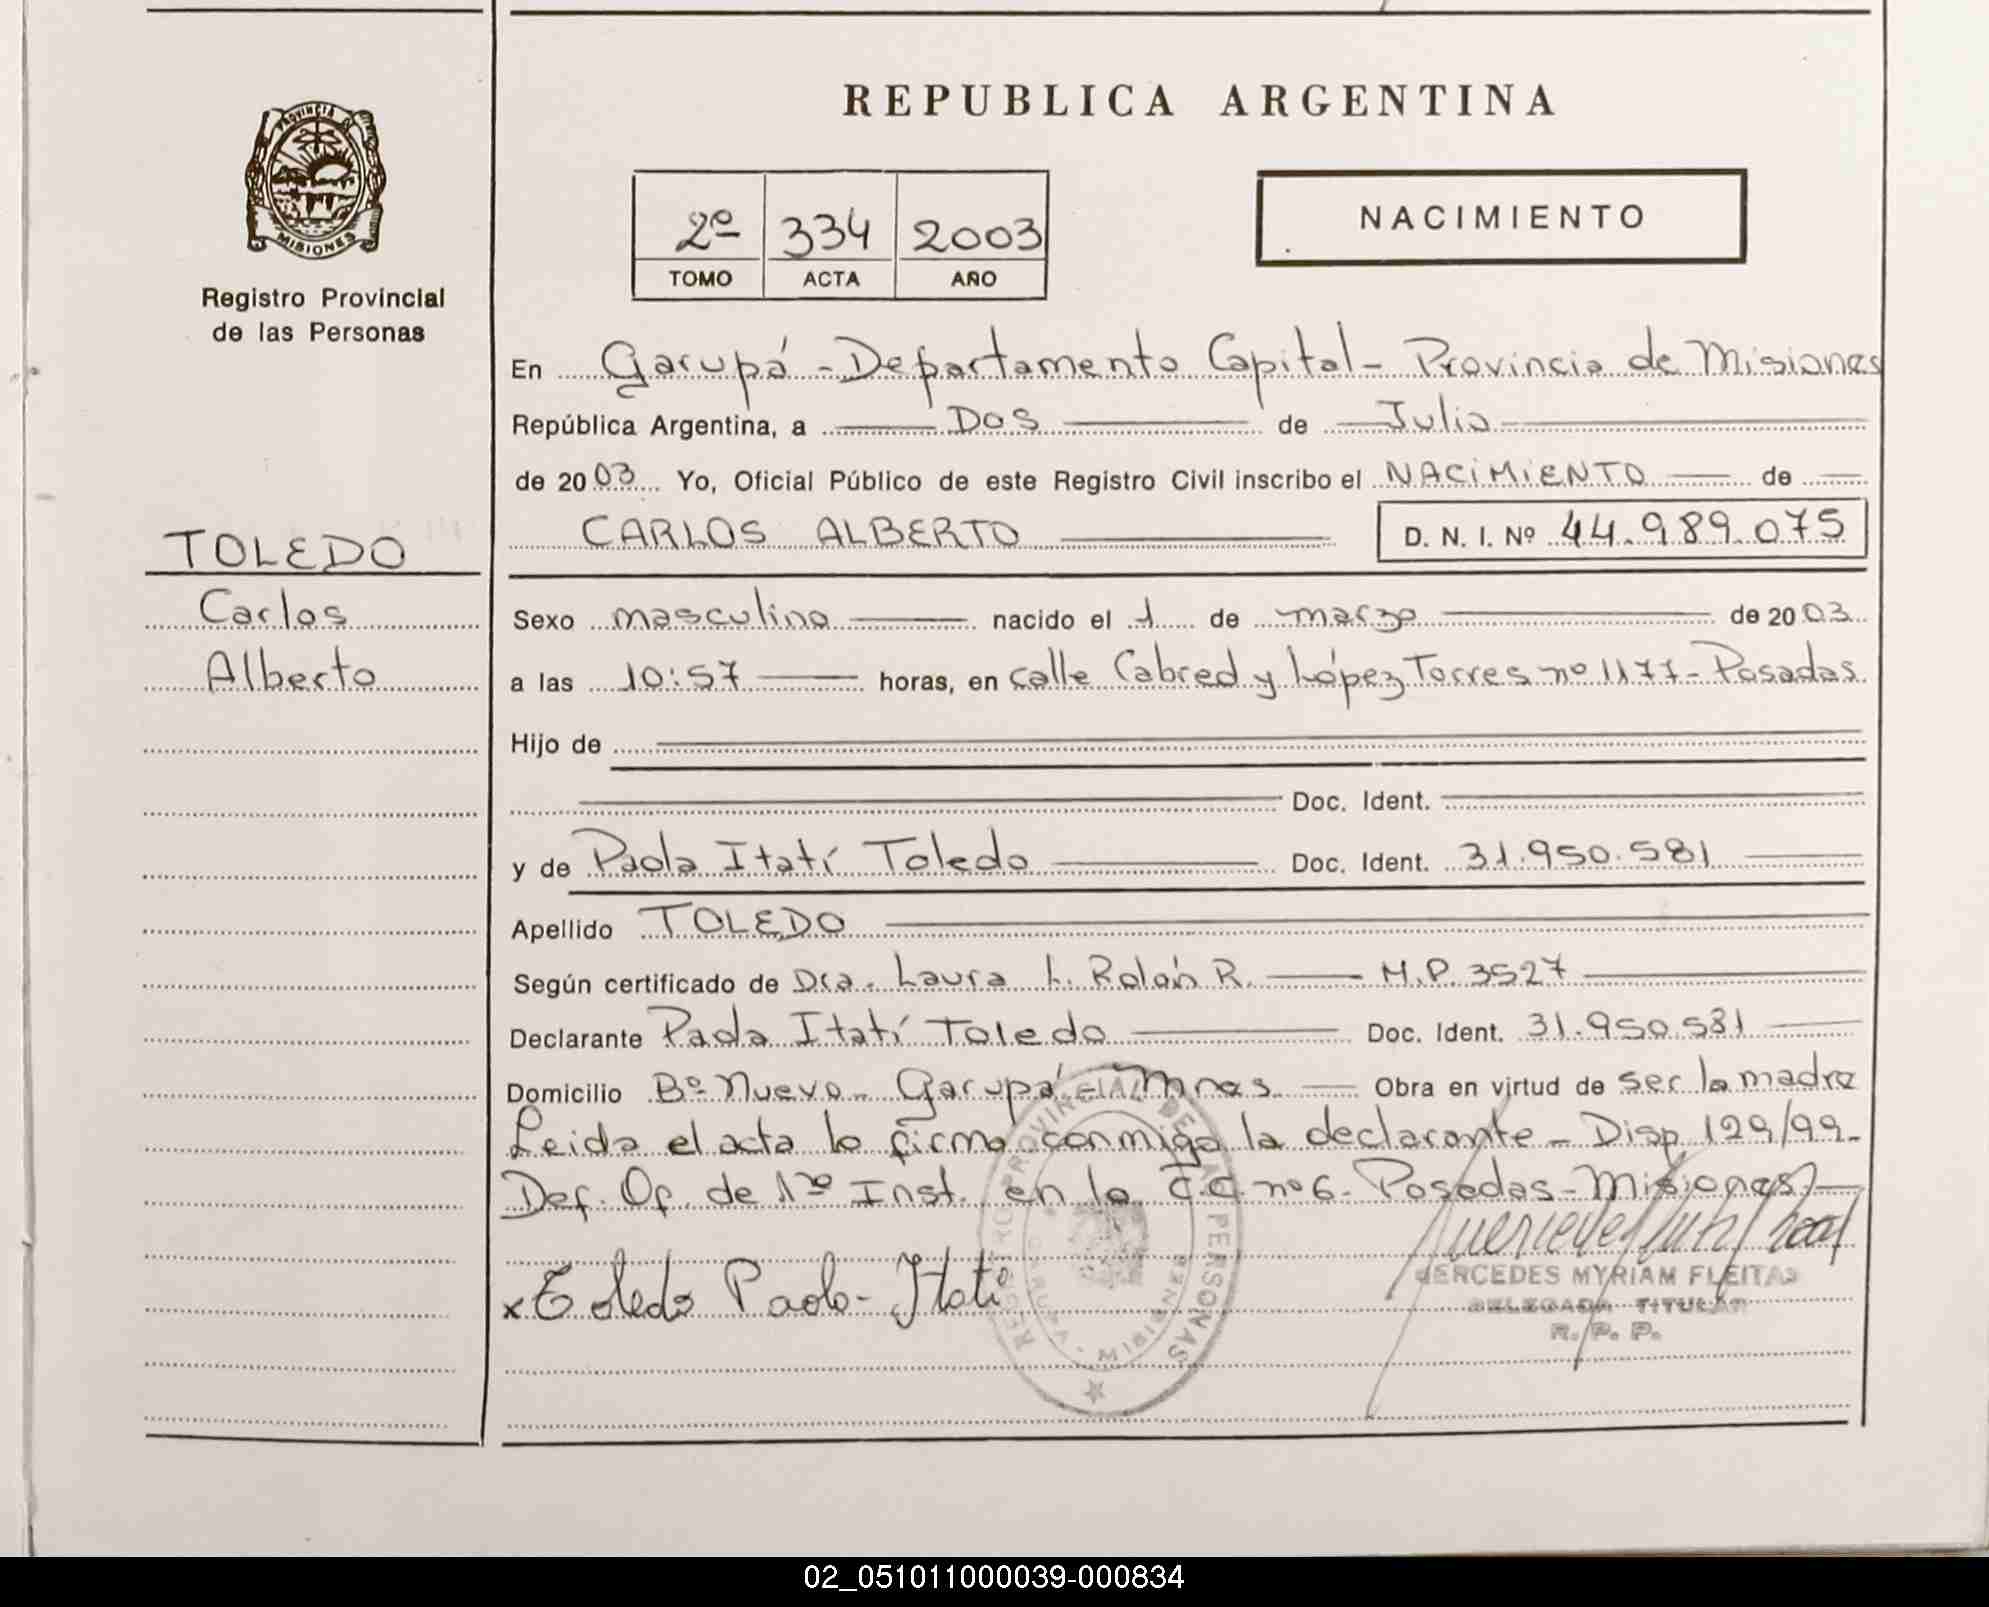 REPUBLICA ARGENTINA
PROVINCIA DE
MISIONES
Registro Provincial
de las Personas
2º 334 2003
TOMO ACTA AÑO
NACIMIENTO
En Garupá - Departamento Capital - Provincia de Misiones
República Argentina, a Dos de Julio
de 2003 Yo, Oficial Público de este Registro Civil inscribo el NACIMIENTO de
CARLOS ALBERTO D. N. I. Nº 44.989.075
TOLEDO
Carlos
Alberto
Sexo masculino nacido el 1 de marzo de 2003
a las 10:57 horas, en calle Cabred y López Torres nº 1177 - Posadas
Hijo de
Doc. Ident.
y de Paola Itatí Toledo Doc. Ident. 31.950.581
Apellido TOLEDO
Según certificado de Dra. Laura L. Rolón R. M.P. 3527
Declarante Paola Itatí Toledo Doc. Ident. 31.950.581
Domicilio Bº Nuevo - Garupá - Mnes Obra en virtud de ser la madre
Leida el acta la firma conmigo la declarante - Disp 129/99 -
Def. Of. de 1ra Inst. en lo C.C. nº 6 - Posadas - Misiones
x Toledo Paola Itati
REGISTRO PROVINCIAL DE LAS PERSONAS
GARUPA - MISIONES
MERCEDES MYRIAM FLEITAS
DELEGADA TITULAR
R. P. P.
02_051011000039-000834